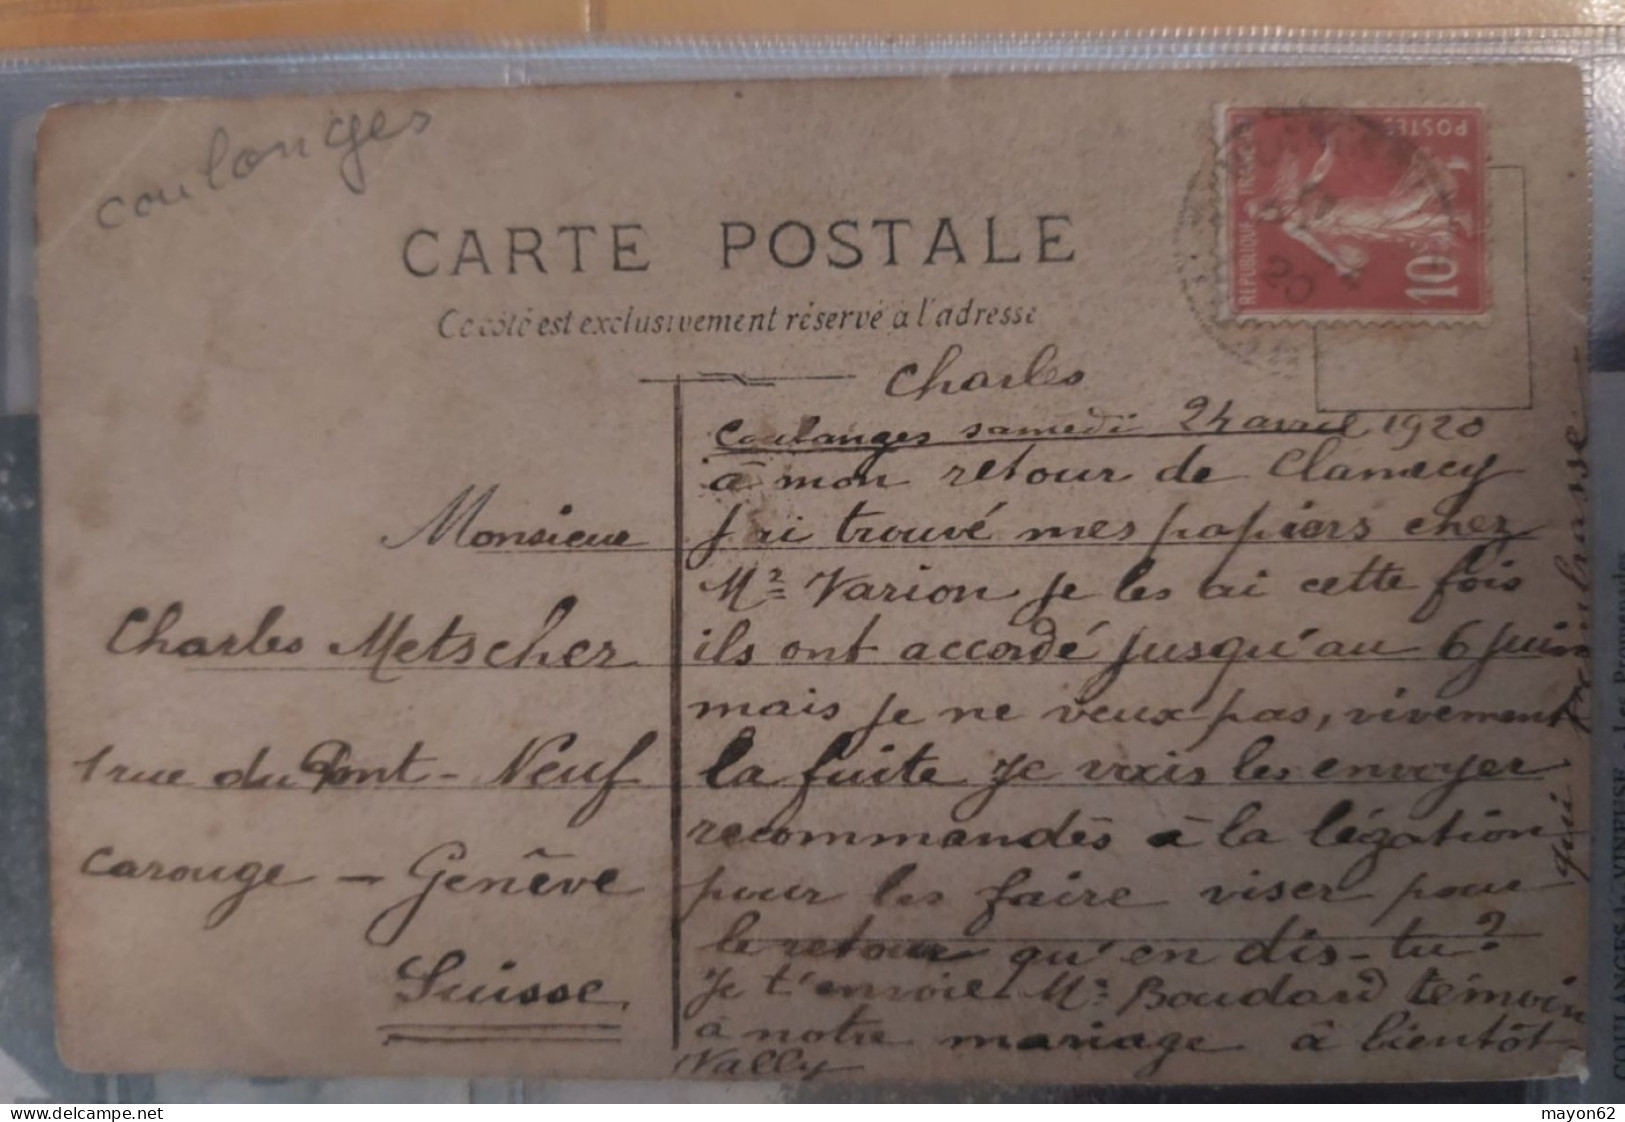 coulanges
CARTE POSTALE
Ce côté est exclusivement réservé à l'adresse
POSTES
REPUBLIQUE FRANÇAISE
10
20
Monsieur
Charles Metscher
1 rue du Pont-Neuf
Carouge - Genève
Suisse
Charles
Coulanges samedi 24 avril 1920
à mon retour de Clamecy
J'ai trouvé mes papiers chez
Mr Varion je les ai cette fois
ils ont accordé jusqu'au 6 juin
mais je ne veux pas, vivement
la fuite Je vais les envoyer
recommandés à la légation
pour les faire viser pour
le retour qu'en dis-tu?
Je t'envoie Mr Boudard témoin
à notre mariage à bientôt
Wally
qui t'embrasse
COULANGES-la-VINEUSE - Les Promenades
mayon62